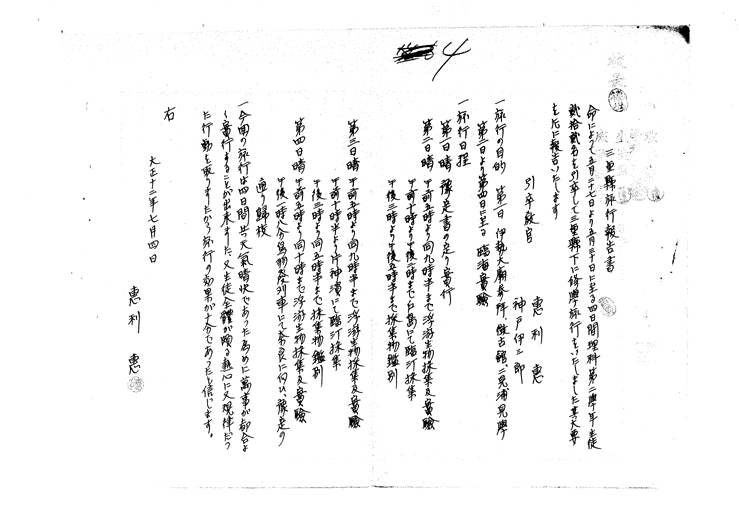 4
三重縣旅行報告書
命によつて五月二十七日より五月三十日に至る四日間理科第二學年生徒
貳拾貳名を引卒して三重縣下に修學旅行をいたしました其大要
を左に報告いたします
引卒教官 惠利惠
神戸伊三郎
一旅行の目的 第一日 伊勢大廟參拜 徴古館二見浦見學
第二日より第四日に至る 臨海實驗
一旅行日程
第一日時 豫定書の通り實行
第二日時 午前五時より同九時半まで浮游生物採集及實驗
午前十時より午後二時まで にて臨汀採集
午後三時より午後五時半まで採集物鑑別
第三日時 午前五時より同九時半まで浮游生物採集及實驗
午前十時半より 神濱にて臨汀採集
午後三時より同五時半まで採集物鑑別
第四日時 午前五時より同十時まで浮游生物採集及實驗
午後一時八分鳥羽發列車にて奈良に向ひ、豫定の
通り歸校
一今回の旅行は四日間共天氣晴朗であつた為めに萬事が都合よ
く實行することが出來ました又生徒全體が頗る熱心に又規律だつ
た行動を取りましたから旅行の効果が十分であつたと信じます。
右
大正十二年七月四日
惠利惠